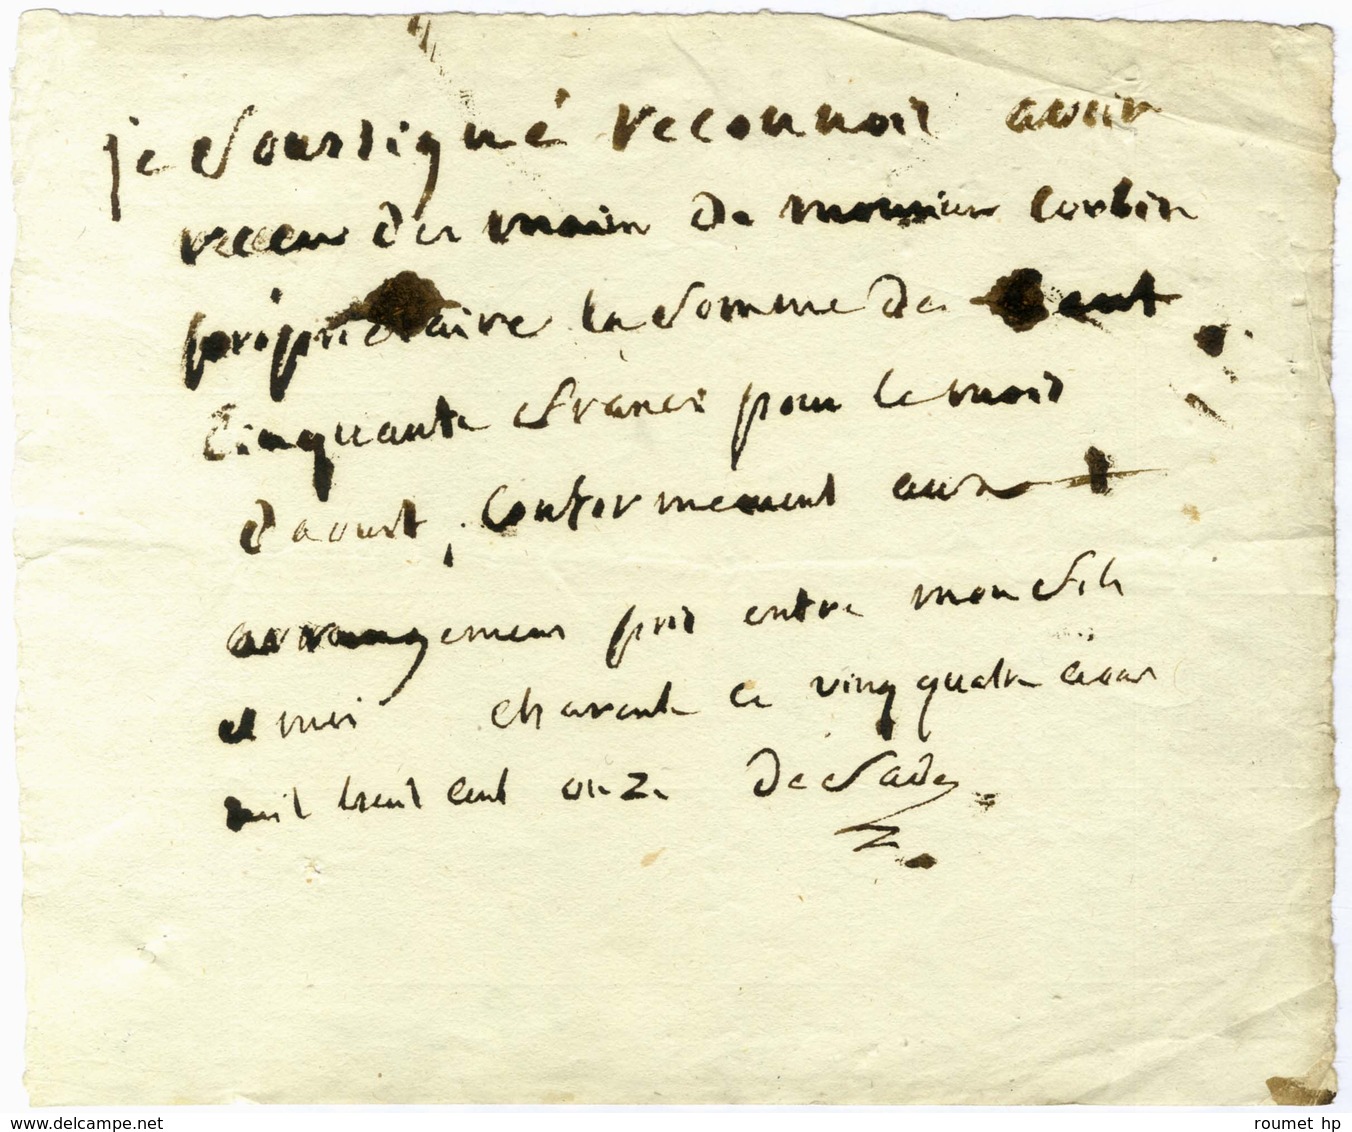 je soussigné reconnois avoir
receu des main de monsieur Corbin
propriétaire la somme de Cent
Cinquante francs pour le mois
daoust, Conformement aux
arrangemens pris entre mon fils
et moi charenton ce vingt quatre aoust
mil huit cent onze De Sade
roumet hp